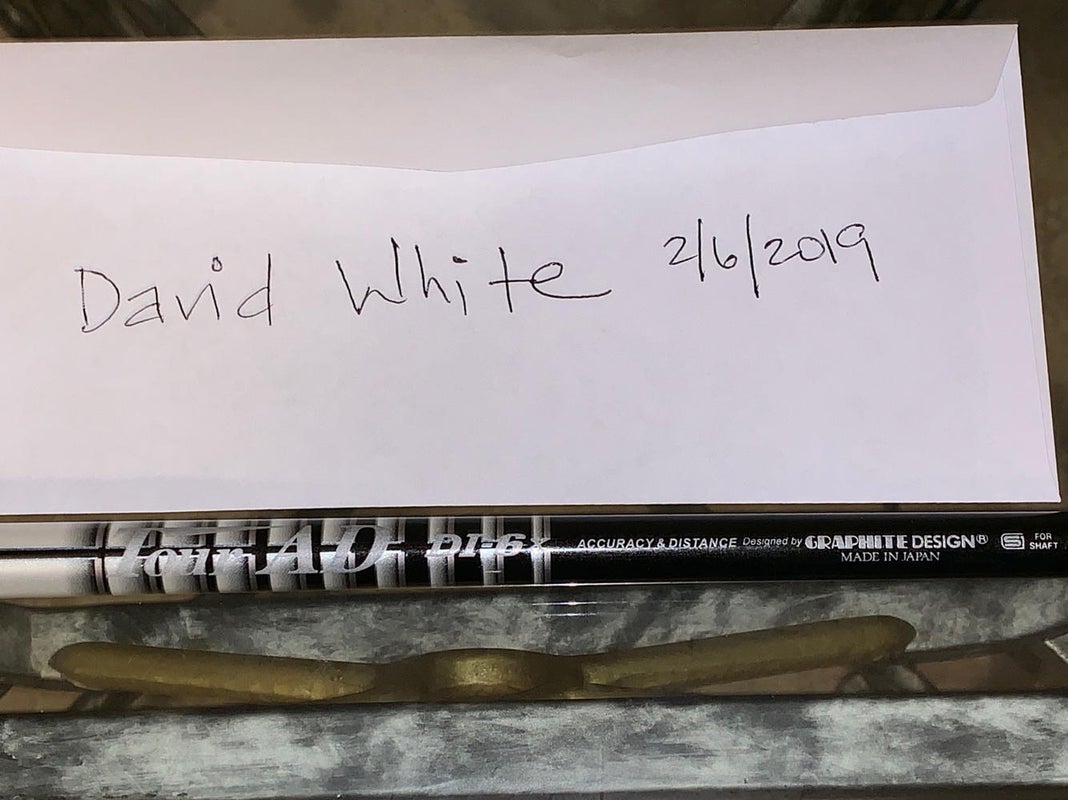 David White 2/6/2019
Tour AD DI-6X ACCURACY & DISTANCE Designed by GRAPHITE DESIGN® FOR SHAFT
MADE IN JAPAN